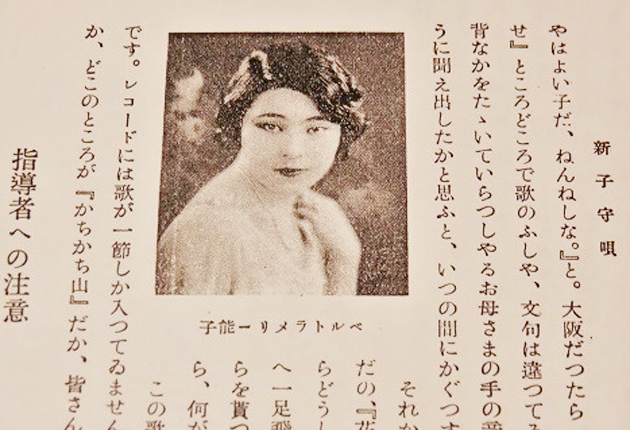 新子守唄
やはよい子だ、ねんねしな。』と。大阪だつたら
せ』ところどころで歌のふしや、文句は違つて
背なかをたゝいていらつしやるお母さまの手の
うに聞え出したかと思ふと、いつの間にかぐつす
ベルトラメリー能子
それか
だの、『花
らどうし
へ一足飛
らを貰つ
ら、何が
この歌
です。レコードには歌が一節しか入つてゐません
か、どこのところが『かちかち山』だか、皆さん
指導者への注意